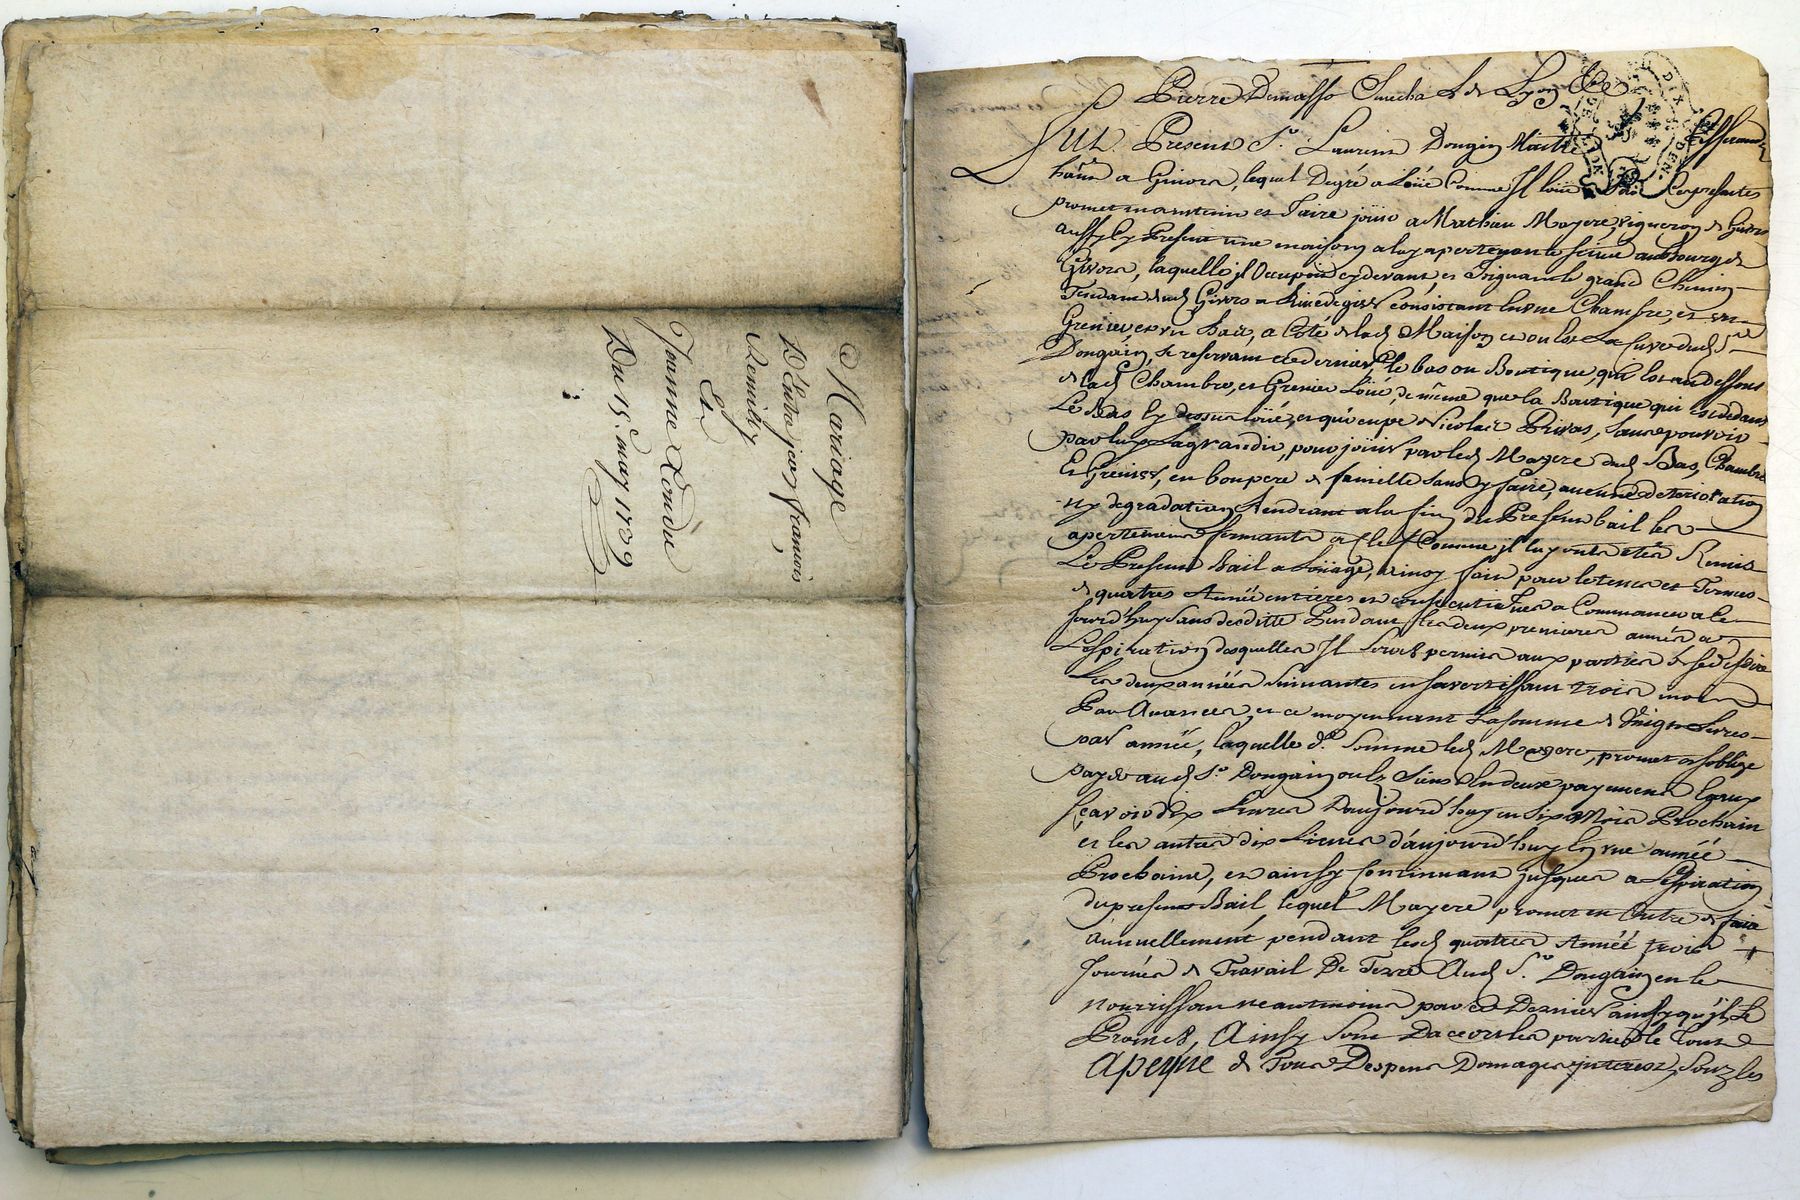 Mariage
D'Entre jean francois
Remilly
Et
Jeanne Condu
Du 15e. may 1739
Pierre Sénécha & de Lyon &c
DIX DEN.
Fut Present Sr. Laurens Dongin Maitre
a Givors, lequel Degré a Loüe Comme Il loüe
promet maintenir et faire joüir a Mathieu Mayere vigneron de Givors
aussy Cy Present une maison a luy apertenante scitue au bourg de
Givors, laquelle jl Occupoit cydevant, et joignant le grand Chemin
Tendant dud Givors a Rivedegier consistant en une Chambre, et un
Grenier, et un bas, a Côté de lad Maison et ou est la Cuve dud Sr
Dongain, se reservant ce dernier, le bas ou Boutique, qui est au dessous
de lad Chambre, et Grenier Loüé, de même que la Boutique qui est dedans
Le Bas Cy dessus loüé, et qu'ocupe Nicolas Privas, sans pouvoir
par luy Lagrandir, pour joüir par led Mayere dud Bas, Chambre
Et Grenier, en bon pere de famille sans y faire, aucune deterioration
ny degradation Rendrant a la fin du Present bail les
apertements fermants a Clef Comme jl luy ont etés Remis
Le Present Bail a Loüage, ainsy fait pour le tems et Termes
de quatres Année entieres et consecutives a Commancer a ce
jourd'huy sans dedditte Pendant les deux premieres année a
Lespiration desquelles Il sera permis aux parties de se dedire
Les deux années suivantes en s'avertissant trois mois
Par Avance, et ce moyennant La somme de Vingt Livres
par année, laquelle de. somme led Mayere, promet et s'oblige
payer aud Sr. Dongain ou es Siens En deux payements Egaux
sçavoir dix Livres Daujourd'huy en six Mois Prochain
et les autres dix Livres d'aujourd'huy En une année
Prochaine, et ainsy continuant jusques a Lespiration
du present Bail, lequel Mayere promet en Outre de faire
annuellement pendant lesd quatres Année trois
Journés de Travail De Terre Aud Sr. Dongain en le
nourrissant neantmoins par ce Dernier ainsy qu'jl Le
Promet, Ainsy sont Dacort les parties le tout
Apeyne de Tous Despens Domages jnterest, souz les